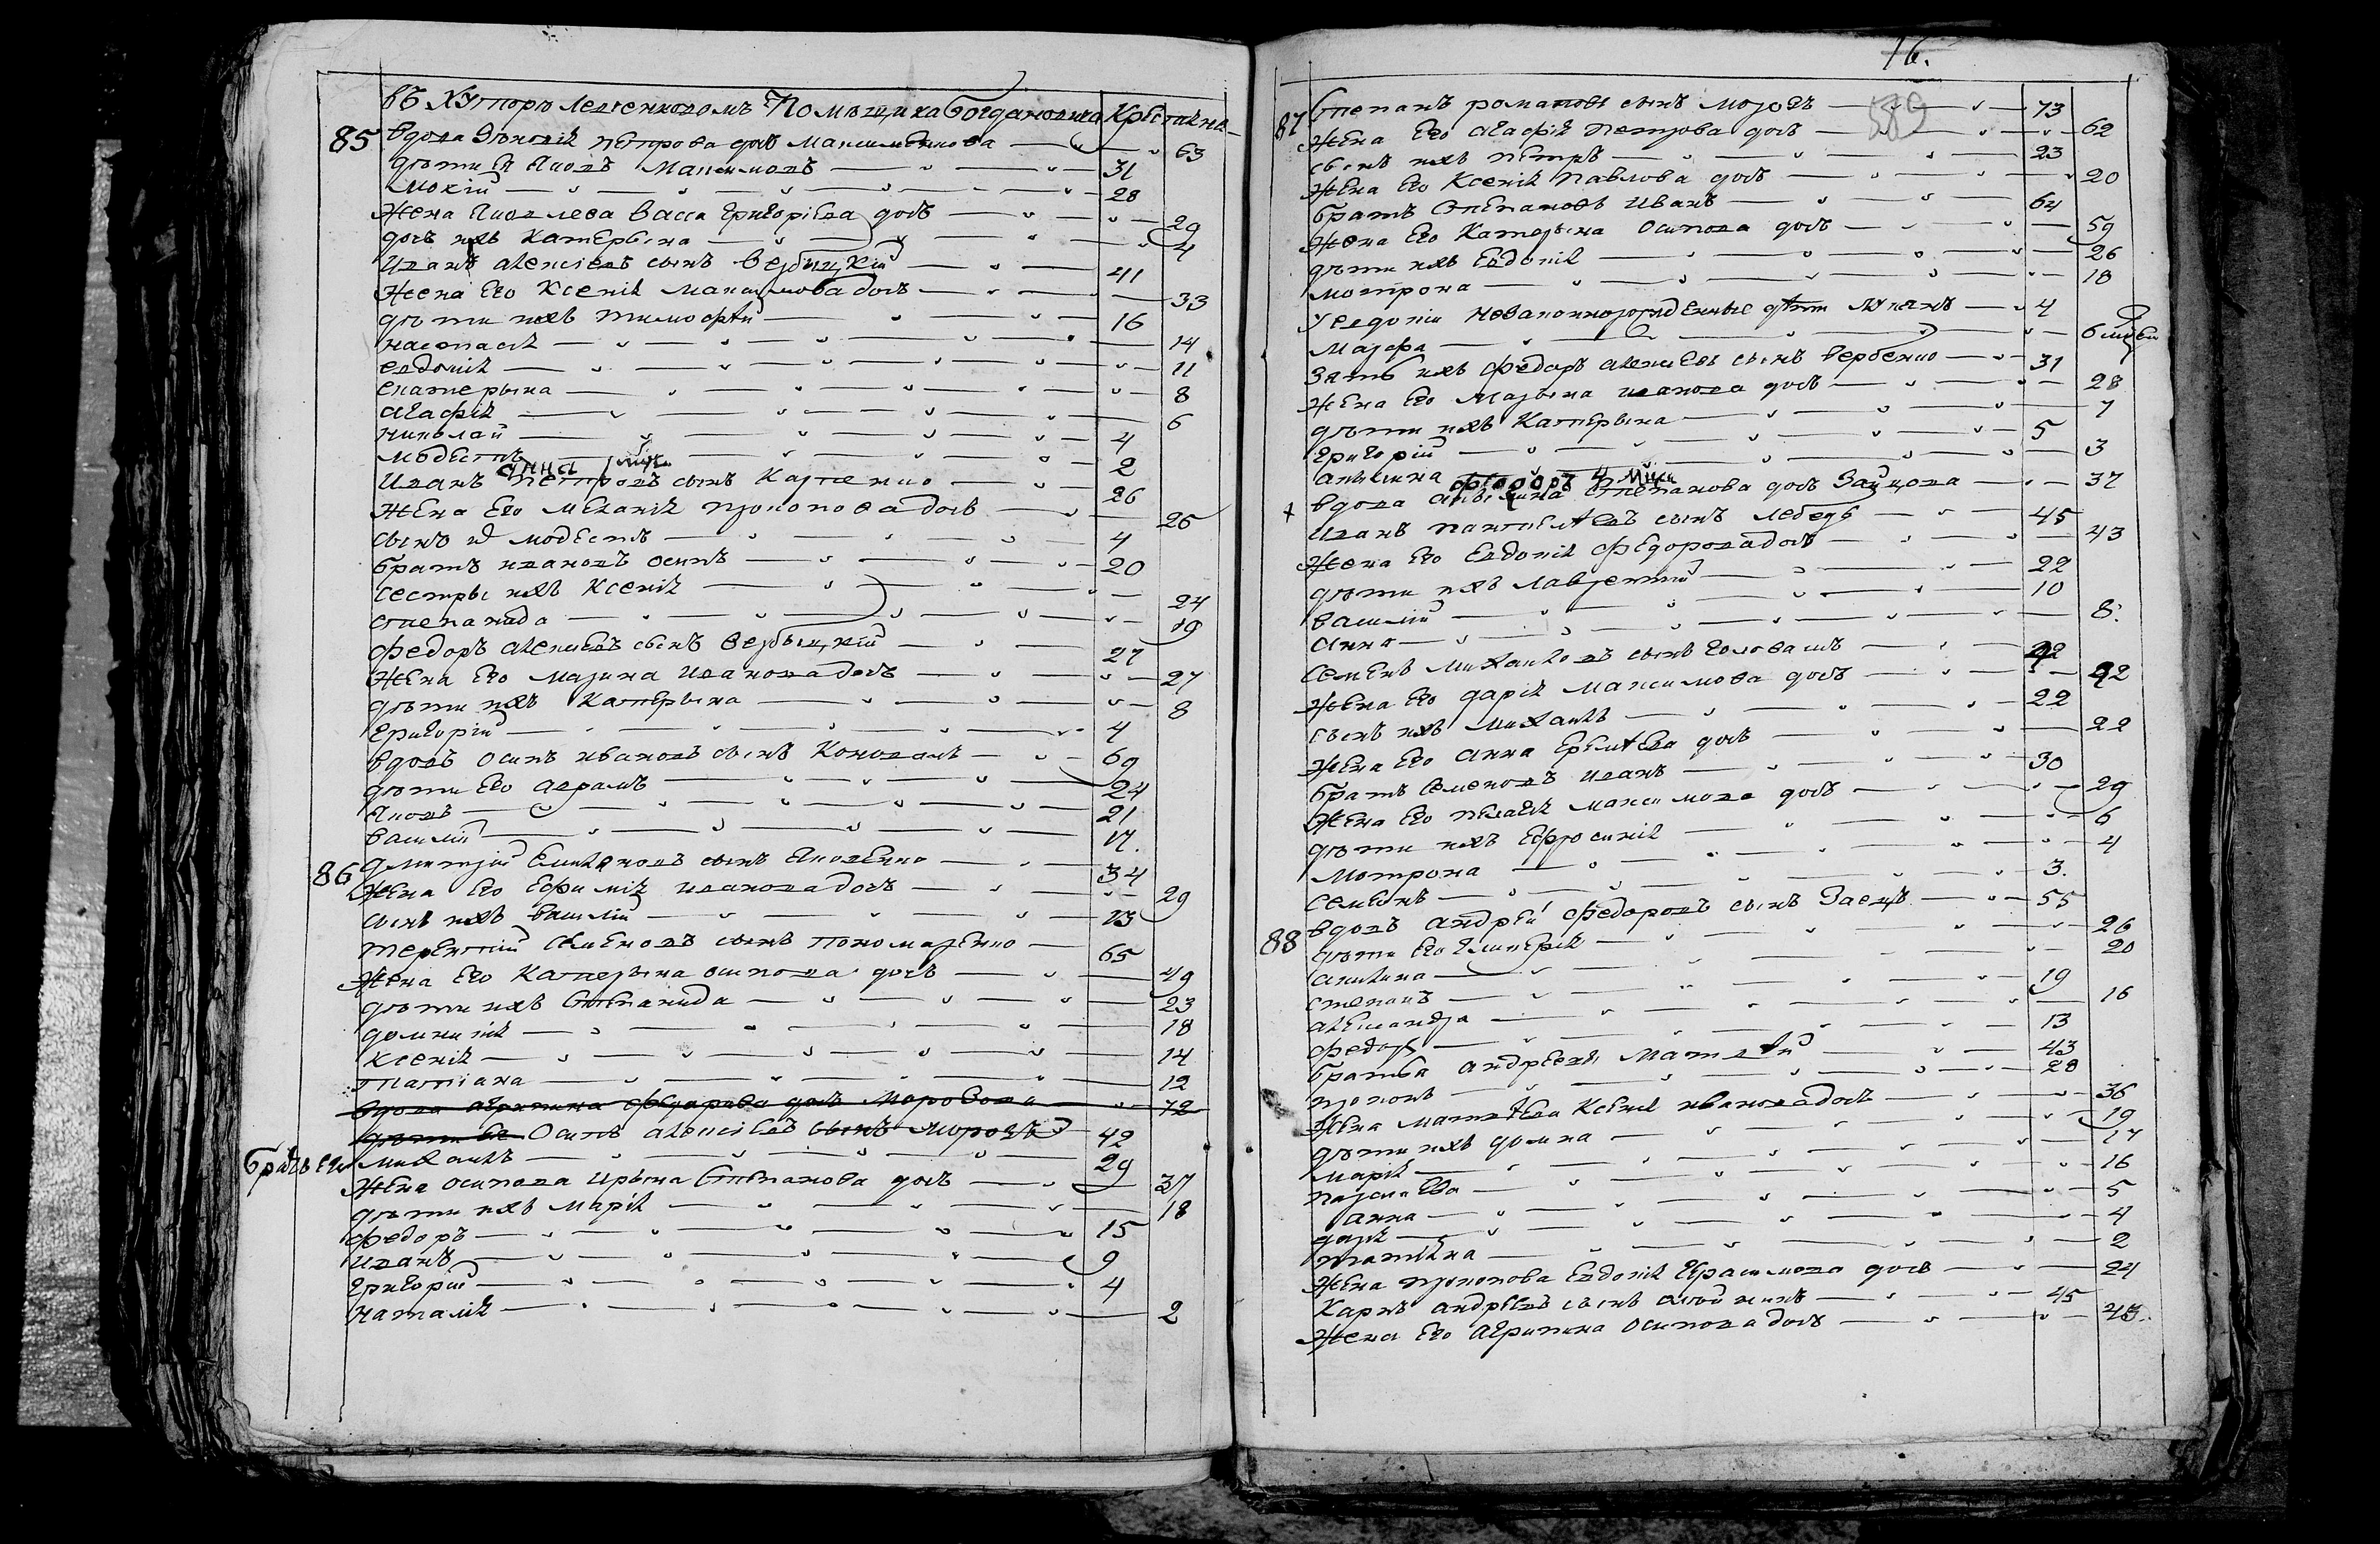 въ Хуторъ Левченковомъ Помѣщика Богдановича Крестьяне
85 вдова Евдокія Петрова дочь Максименкова 63
дѣти Ея Яковъ Максимовъ 31
Мокій 28
Жена Яковлева Васса Григоріева дочь 29
дочь ихъ Катерына 4
Иванъ алексіевъ сынъ вербицкій 41
Жена Его Ксенія Максимова дочь 33
дѣти ихъ тимофѣй 16
настасія 14
евдокія 11
екатерына 8
агафія 6
николай 4
модестъ 2
анна
Иванъ петровъ сынъ Карпенко 26
Жена Его Меланія прокопова дочь 25
сынъ модестъ 4
братъ ивановъ осипъ 20
сестры ихъ Ксенія 24
степанида 19
федоръ алексіевъ сынъ вербыцкій 27
Жена Его Марина иванова дочь 27
дѣти ихъ Катерына 8
григорій 4
вдовъ осипъ ивановъ сынъ Коновалъ 69
дѣти Его аврамъ 24
яковъ 21
василій 17.
86 дмитрій сынъ Яковенко 34
Жена Его Ефимія иванова дочь 29
сынъ ихъ василій 13
терентій семеновъ сынъ пономаренко 65
Жена Его Катерына осипова дочь 49
дѣти ихъ степанида 23
домникія 18
Ксенія 14
татіана 12
вдова агрипина федорова дочь Морозова 72
дѣти Ея Осипъ алексіевъ сынъ морозъ 42
братъ его михаилъ 29
Жена осипова ирына степанова дочь 37
дѣти ихъ марія 18
федоръ 15
иванъ 9
григорій 4
наталія 2
76.
589
87 степанъ романовъ сынъ морозъ 73
Жена Его агафія петрова дочь 62
сынъ ихъ петръ 23
Жена Его Ксенія павлова дочь 20
братъ степановъ иванъ 64
Жена Его Катерына осипова дочь 59
дѣти ихъ Евдокія 26
мотрона 18
У евдокіи незаконнорожденные дѣти 4
марфа 6
зять ихъ федоръ алексіевъ сынъ вербенко 31
Жена Его Марына иванова дочь 28
дѣти ихъ Катерына 7
григорій 5
акилина 3
федоръ 4
вдова степанова дочь Зайцова 37
иванъ пантелѣевъ сынъ лебедь 45
Жена Его Евдокія федорова дочь 43
дѣти ихъ лаврентій 22
василій 10
анна 8.
семенъ михайловъ сынъ головашъ 42
Жена Его дарія максимова дочь 42
сынъ ихъ михаилъ 22
Жена Его анна еремѣева дочь 22
братъ семеновъ иванъ 30
Жена Его пелагія максимова дочь 29
дѣти ихъ ефросинія 6
мотрона 4
семенъ 3.
88 вдовъ андрей федоровъ сынъ Заецъ 55
дѣти Его гликерія 26
акилина 20
степанъ 19
александра 16
федоръ 13
братья андреевы матвѣй 43
прокопъ 28
Жена матвѣева Ксенія иванова дочь 36
дѣти ихъ домна 19
марія 17
параскева 16
анна 5
дарія 4
татіяна 2
Жена прокопова Евдокія герасимова дочь 24
Карпъ андреевъ сынъ 45
Жена Его агрипина осипова дочь 43.